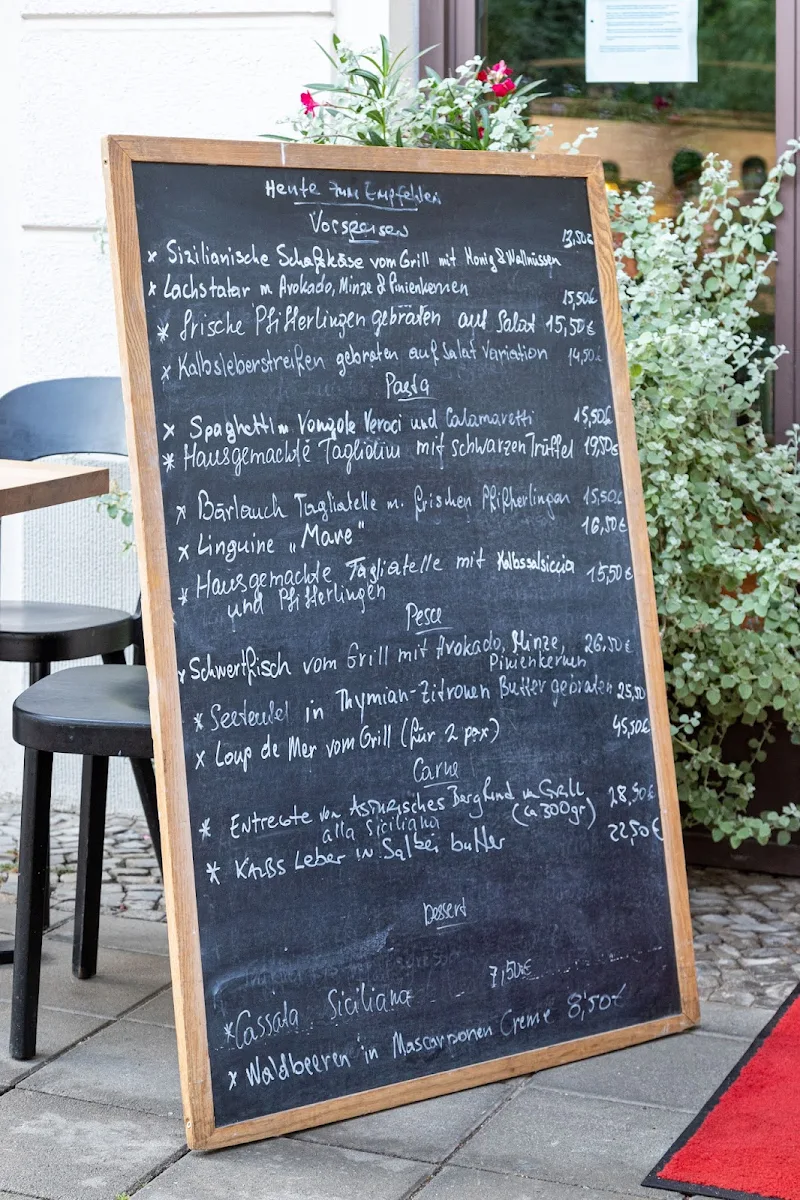 Heute zum Empfehlen
Vorspeisen
x Sizilianische Schafskäse vom Grill mit Honig & Wallnüssen 13,50€
x Lachstatar m Avokado, Minze & Pinienkernen 15,50€
* frische Pfifferlingen gebraten auf Salat 15,50€
x Kalbsleberstreifen gebraten auf Salat Variation 14,50€
Pasta
x Spaghetti m Vongole Veraci und Calamaretti 15,50€
* Hausgemachte Tagliolini mit schwarzen Trüffel 19,50€
x Bärlauch Tagliatelle m. frischen Pfifherlingen 15,50€
x Linguine „Mare" 16,50€
* Hausgemachte Tagliatelle mit Kalbssalsiccia 15,50€
und Pfifferlingen
Pesce
x Schwertfisch vom Grill mit Avokado, Minze, 26,50€
Pinienkernen
* Seeteufel in Thymian-Zitronen Butter gebraten 25,50
x Loup de Mer vom Grill (für 2 pax) 45,50€
Carne
* Entrecote von Asturisches Berg Rind v. Grill 28,50€
alla Siciliana (ca 300gr)
* Kalbs Leber in Salbei butter 22,50€
Dessert
* Cassata Siciliana 7,50€
x Waldbeeren in Mascarponen Creme 8,50€